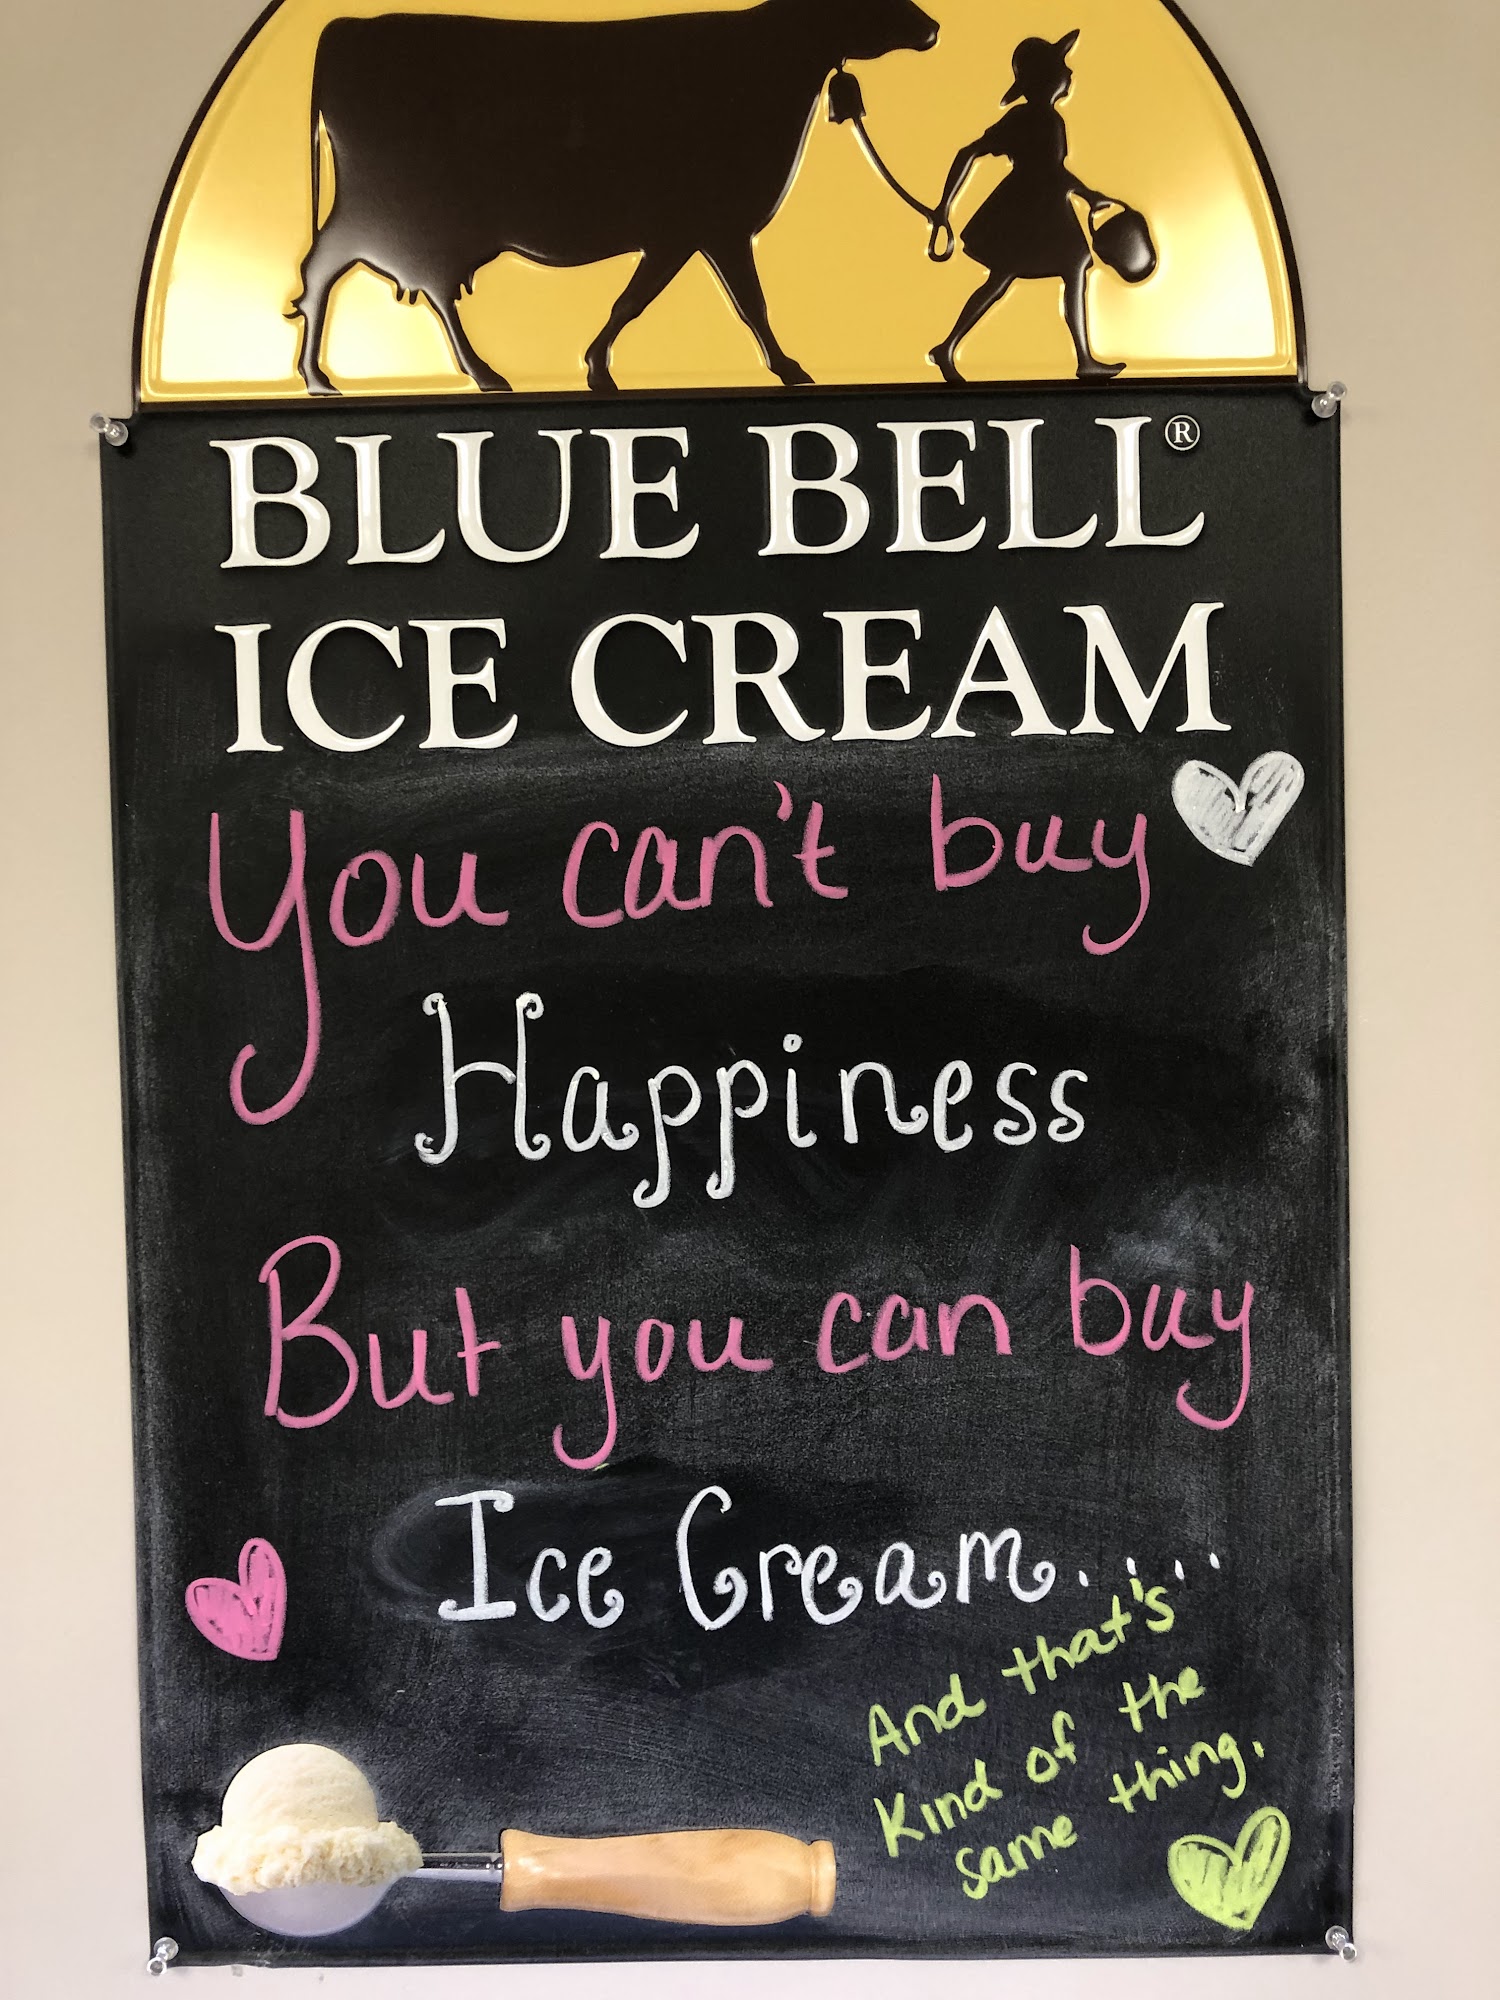 BLUE BELL®
ICE CREAM
You can't buy
Happiness
But you can buy
Ice Cream.....
And that's
Kind of the
same thing.